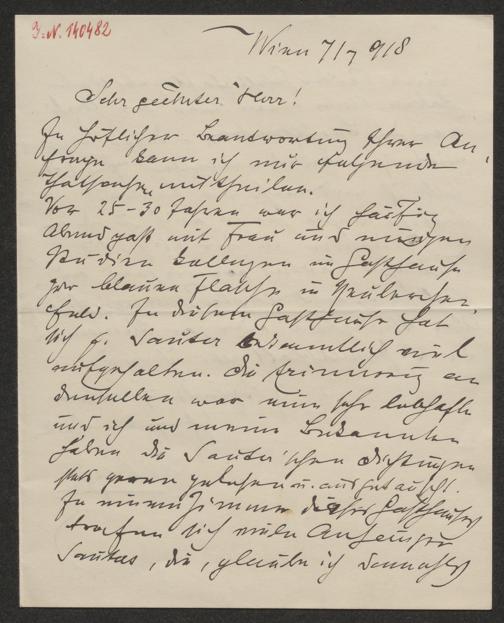 J. N. 140482
Wien 7/7 918
Sehr geehrter Herr!
In höflicher Beantwortung Ihrer An-
frage kann ich nur folgende
Thatsache mittheilen.
Vor 25-30 Jahren war ich häufig
Abendgast mit Frau und
Studien Collegen im Gasthause
zur blauen Flasche in Neulerchen-
feld. In diesem Gasthause hat
sich F. Sauter bekanntlich viel
aufgehalten. Die Erinnerung an
denselben war eine sehr lebhafte
und ich und meine Bekannten
haben die Sauter'schen Dichtungen
stets gerne gelesen u. ausgetauscht.
In einem Zimmer dieses Gasthauses
trafen sich viele Anhänger
Sauters, die, glaube ich damahls